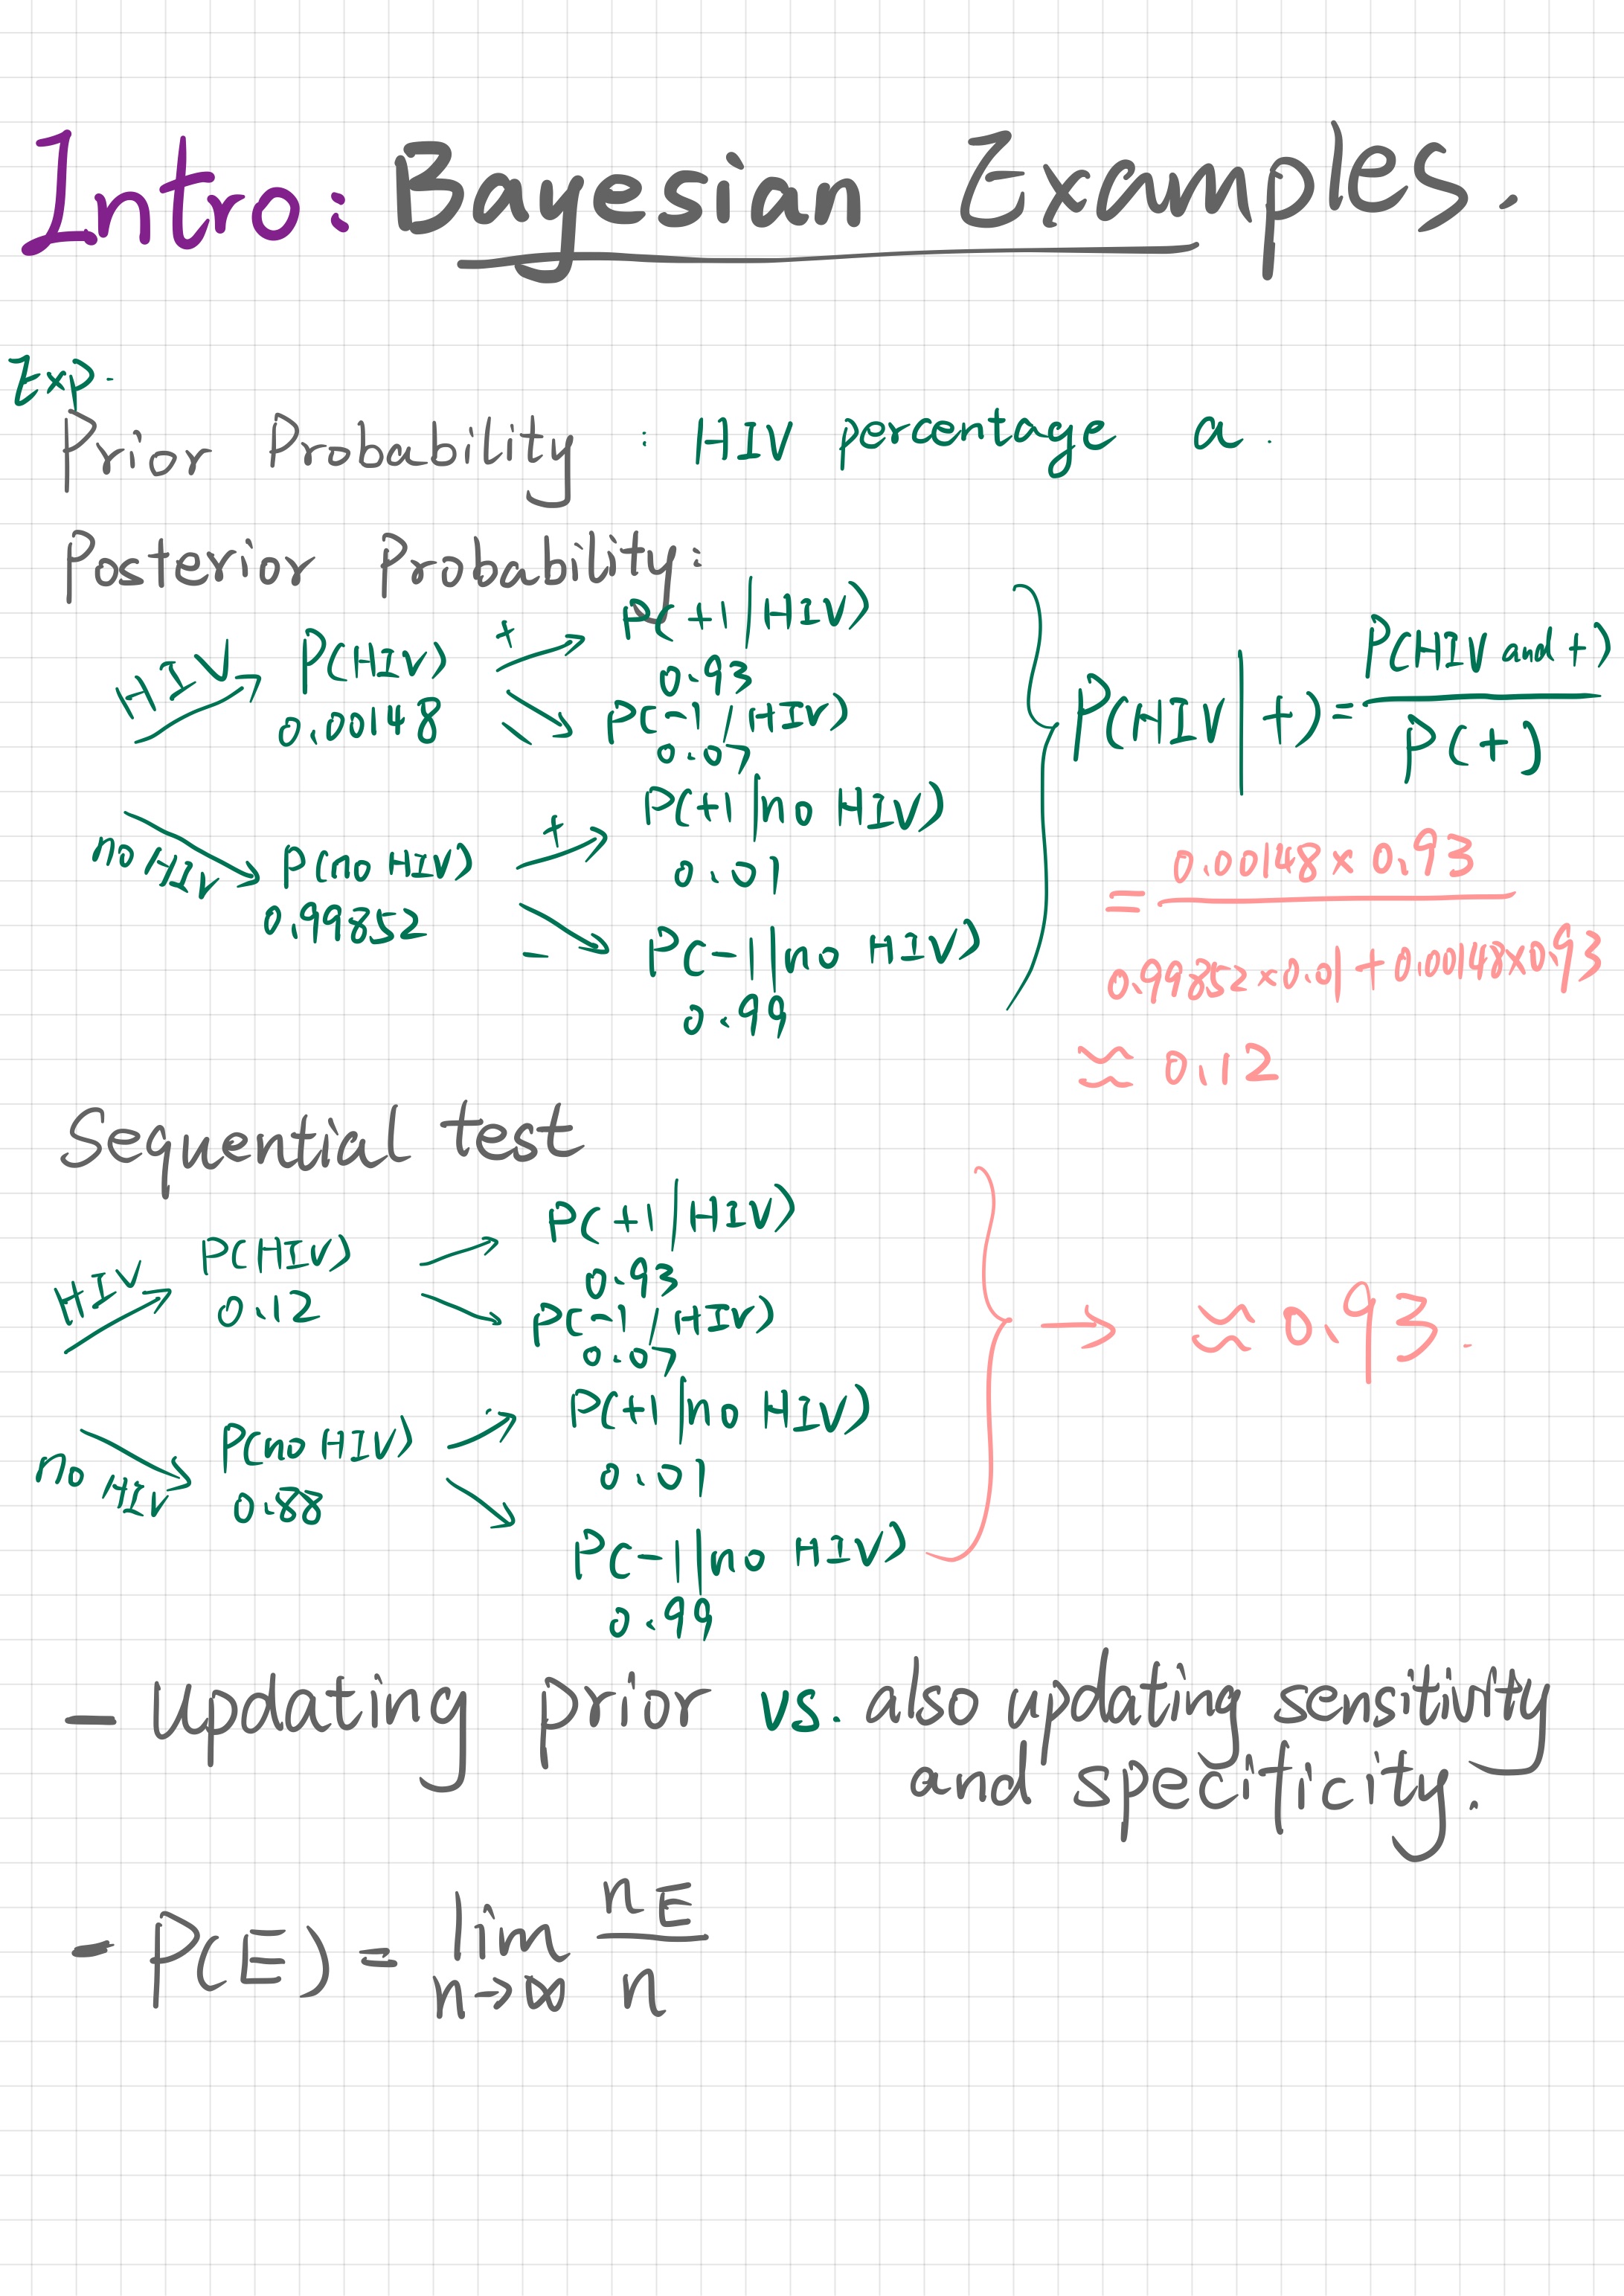 Intro: Bayesian Examples.
Exp.
Prior Probability : HIV percentage a.
Posterior Probability:
HIV P(HIV) + P(+1|HIV)
0.00148 0.93
P(-1|HIV)
0.07
P(HIV|+) = P(HIV and +) / P(+)
no HIV P(no HIV) + P(+1|no HIV)
0.99852 0.01
- P(-1|no HIV)
0.99
= 0.00148 × 0.93 / 0.99852 × 0.01 + 0.00148 × 0.93
≈ 0.12
Sequential test
HIV P(HIV) P(+1|HIV)
0.12 0.93
P(-1|HIV)
0.07
→ ≈ 0.93.
no HIV P(no HIV) P(+1|no HIV)
0.88 0.01
P(-1|no HIV)
0.99
- Updating prior vs. also updating sensitivity
and specificity.
- P(E) = lim n→∞ nE / n